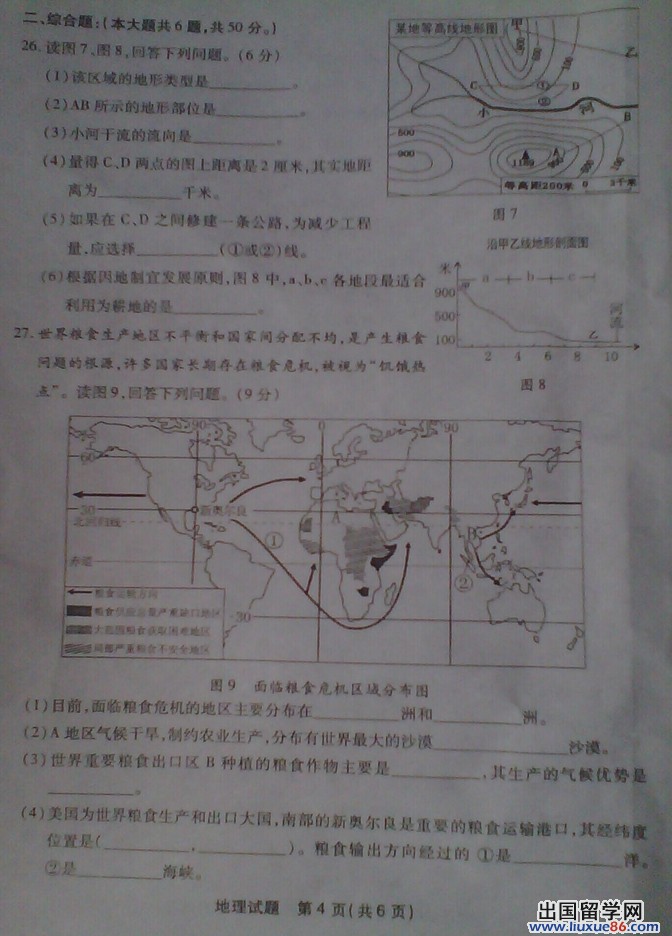 二、综合题:(本大题共6题,共50分。)
26. 读图7、图8,回答下列问题。(6分)
(1)该区域的地形类型是________。
(2)AB所示的地形部位是________。
(3)小河干流的流向是________。
(4)量得C、D两点的图上距离是2厘米,其实地距
离为________千米。
(5)如果在C、D之间修建一条公路,为减少工程
量,应选择________(①或②)线。
(6)根据因地制宜发展原则,图8中,a、b、c各地段最适合
利用为耕地的是________。
某地等高线地形图
甲
乙
C ① D
②
小 河
B
500
900
等高距200米 0 2千米
图7
沿甲乙线地形剖面图
米
a b c
甲
900
500
100
乙
河流
2 4 6 8 10
图8
27. 世界粮食生产地区不平衡和国家间分配不均,是产生粮食
问题的根源,许多国家长期存在粮食危机,被视为“饥饿热
点”。读图9,回答下列问题。(9分)
90 0 90
60
30
新奥尔良
北回归线
①
赤道
②
30
粮食运输方向
大范围粮食获取困难地区
局部严重粮食不安全地区
图9 面临粮食危机区域分布图
(1)目前,面临粮食危机的地区主要分布在________洲和________洲。
(2)A地区气候干旱,制约农业生产,分布有世界最大的沙漠________沙漠。
(3)世界重要粮食出口区B种植的粮食作物主要是________,其生产的气候优势是
________。
(4)美国为世界粮食生产和出口大国,南部的新奥尔良是重要的粮食运输港口,其经纬度
位置是(________,________)。粮食输出方向经过的 ①是________洋。
②是________海峡。
地理试题 第4页(共6页)
出国留学网
www.liuxue86.com